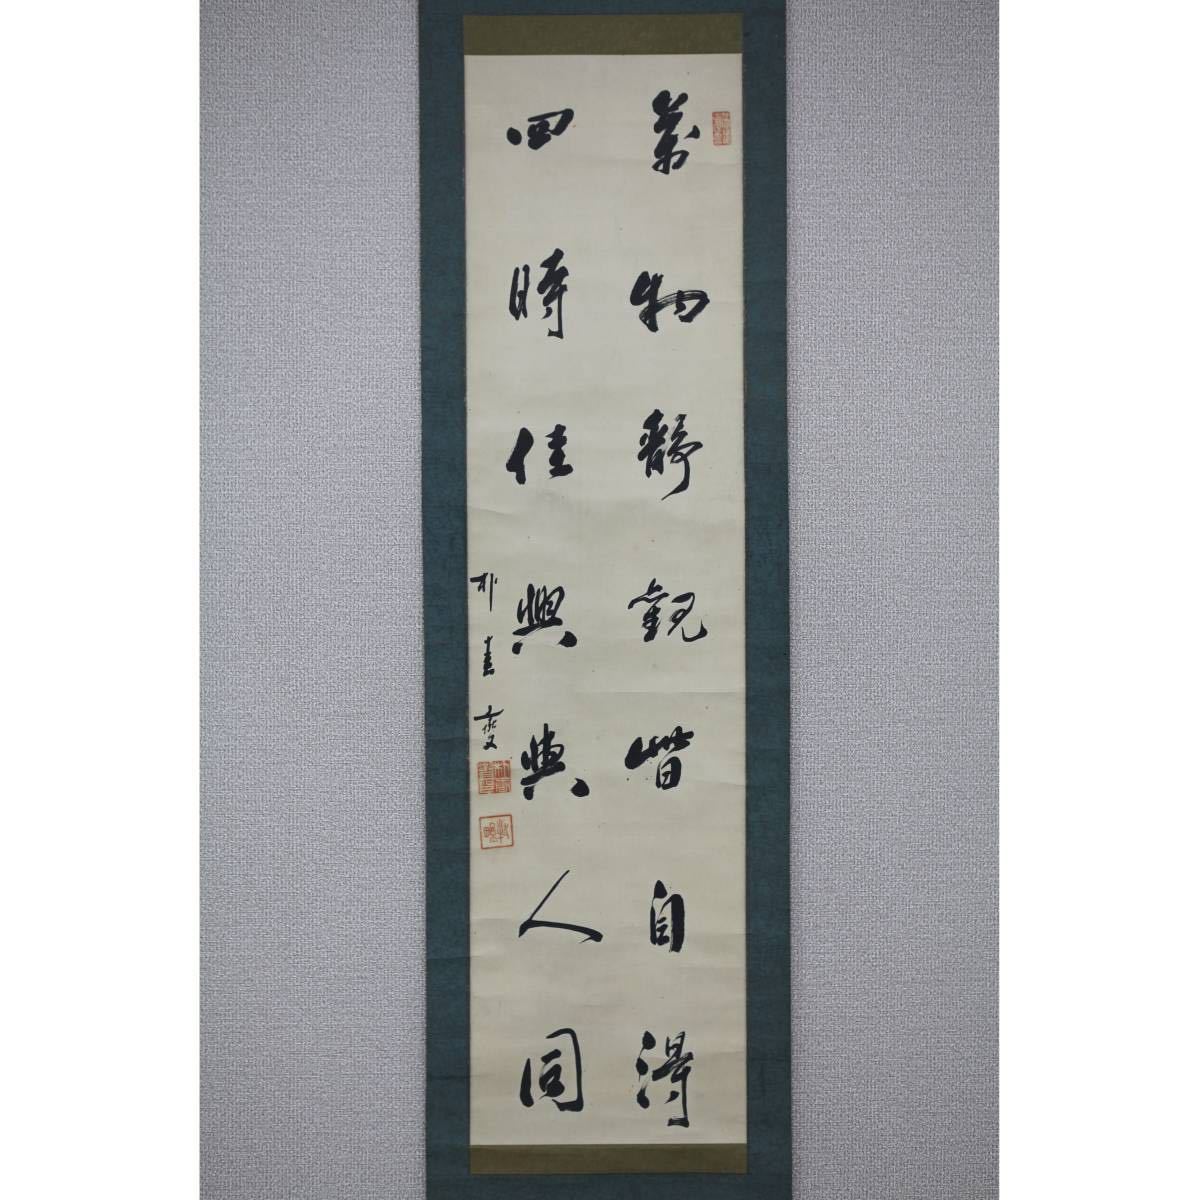 萬物靜觀皆自得
四時佳興與人同
朴素雯